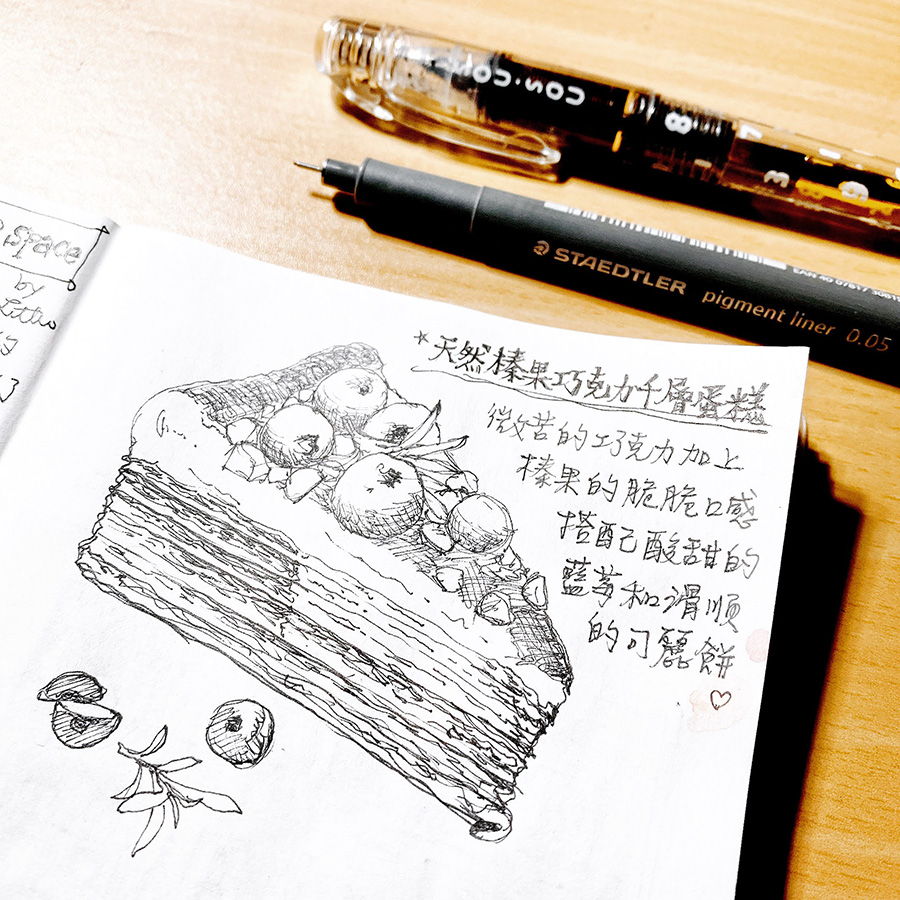 space
by
*天然榛果巧克力千層蛋糕
微苦的巧克力加上
榛果的脆脆口感
搭配酸甜的
藍莓和滑順
的可麗餅
♡
STAEDTLER pigment liner 0.05
8
7
3